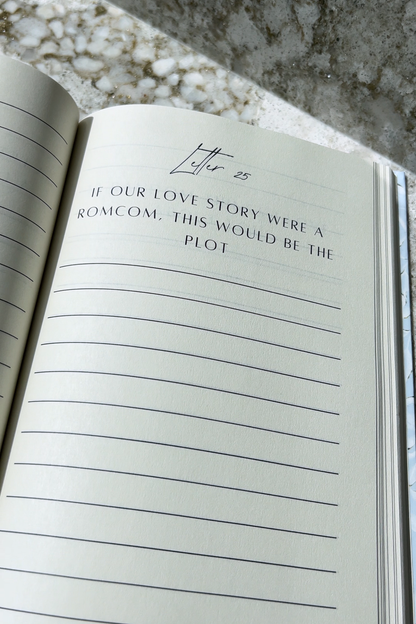 Letter 25
IF OUR LOVE STORY WERE A
ROMCOM, THIS WOULD BE THE
PLOT